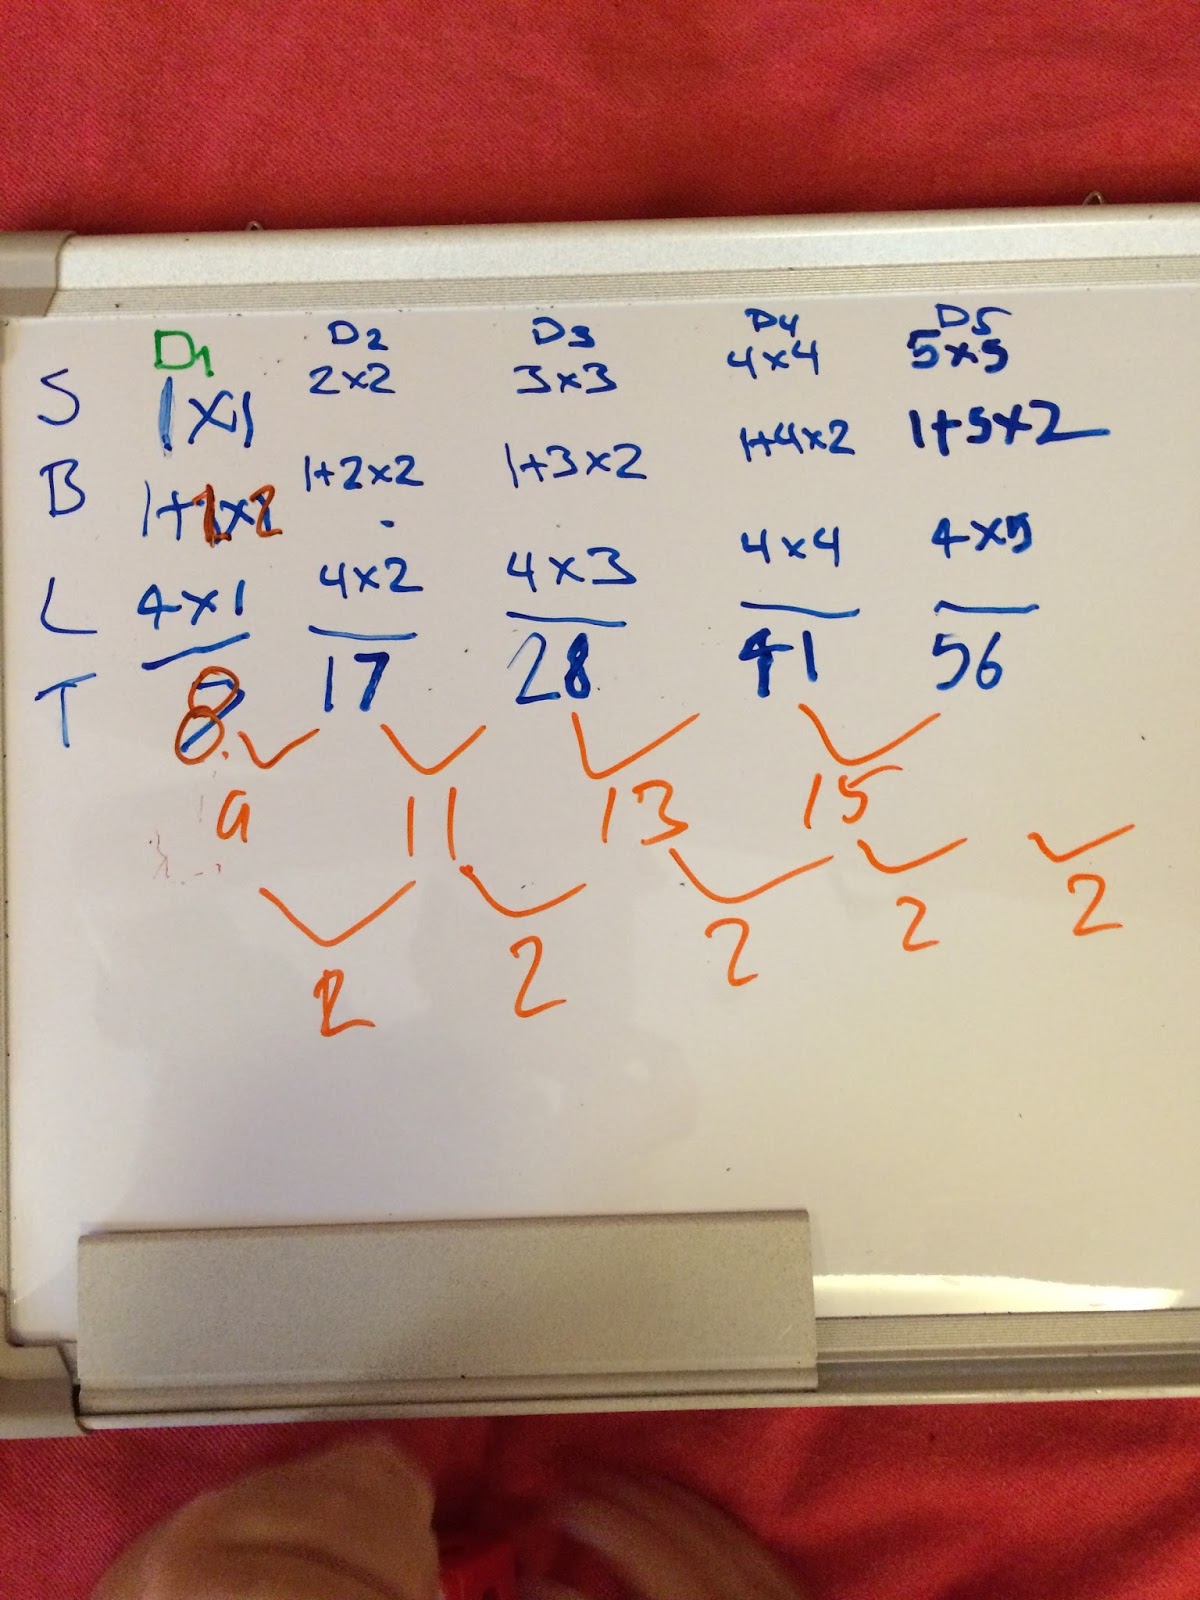 D1 D2 D3 D4 D5
S 1×1 2×2 3×3 4×4 5×5
B 1+1×2 1+2×2 1+3×2 1+4×2 1+5×2
L 4×1 4×2 4×3 4×4 4×5
T 8 17 28 41 56
9 11 13 15
2 2 2 2 2